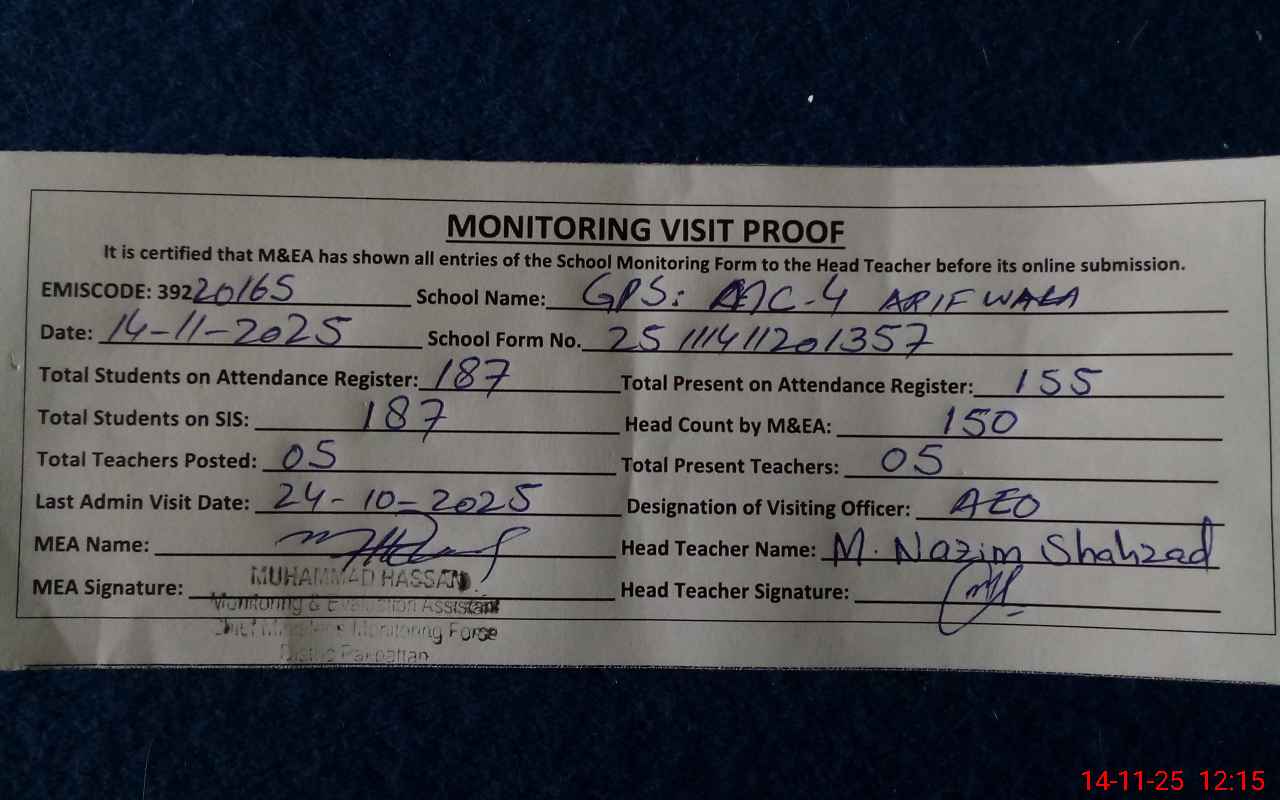 MONITORING VISIT PROOF
It is certified that M&EA has shown all entries of the School Monitoring Form to the Head Teacher before its online submission.
EMISCODE: 39220165 School Name: GPS: MC-4 ARIFWALA
Date: 14-11-2025 School Form No. 25111411201357
Total Students on Attendance Register: 187 Total Present on Attendance Register: 155
Total Students on SIS: 187 Head Count by M&EA: 150
Total Teachers Posted: 05 Total Present Teachers: 05
Last Admin Visit Date: 24-10-2025 Designation of Visiting Officer: AEO
MEA Name: Head Teacher Name: M. Nazim Shahzad
MUHAMMAD HASSAN
MEA Signature: Head Teacher Signature:
Monitoring & Evaluation Assistant
Chief Minister's Monitoring Force
District Pakpattan
14-11-25 12:15